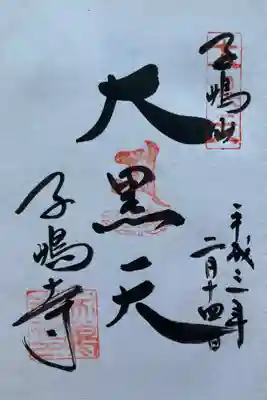 子嶋山
大黒天
平成三年
二月十四日
子嶋寺